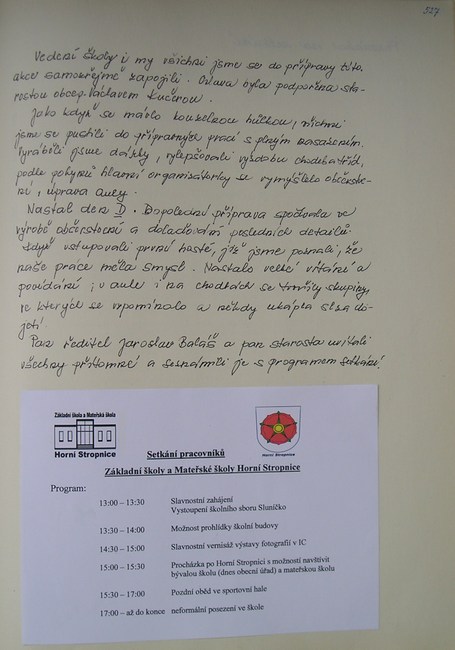 327
Vedení školy i my všichni jsme se do přípravy této
akce samozřejmě zapojili. Oslava byla podpořena sta-
rostou obce p. Václavem Kučerou.
Jako když se mávlo kouzelnou hůlkou, všichni
jsme se pustili do přípravných prací s plným nasazením.
Vyráběli jsme dárky, vylepšovali výzdobu chodeb a tříd,
podle pokynů hlavní organizátorky se vymýšlelo občerstve-
ní, úprava auly.
Nastal den D. Dopolední příprava spočívala ve
výrobě občerstvení a dolaďování posledních detailů.
Když vstupovali první hosté, již jsme poznali, že
naše práce měla smysl. Nastalo velké vítání a
povídání; v aule i na chodbách se tvořily skupiny,
ve kterých se vzpomínalo a někdy ukápla slza do-
jetí!
Pan ředitel Jaroslav Baláš a pan starosta uvítali
všechny přítomné a seznámili je s programem setkání.
Základní škola a Mateřská škola
Horní Stropnice
Horní Stropnice
Setkání pracovníků
Základní školy a Mateřské školy Horní Stropnice
Program:
13:00 – 13:30 Slavnostní zahájení
Vystoupení školního sboru Sluníčko
13:30 – 14:00 Možnost prohlídky školní budovy
14:30 – 15:00 Slavnostní vernisáž výstavy fotografií v IC
15:00 – 15:30 Procházka po Horní Stropnici s možností navštívit
bývalou školu (dnes obecní úřad) a mateřskou školu
15:30 – 17:00 Pozdní oběd ve sportovní hale
17:00 – až do konce neformální posezení ve škole